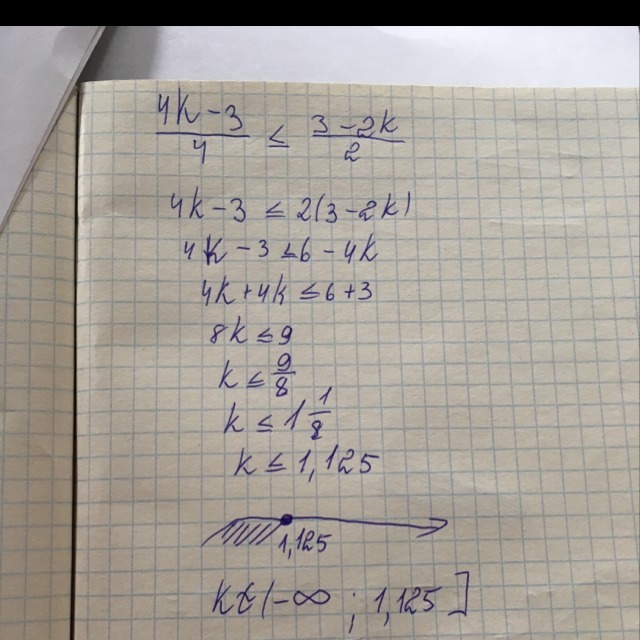 (4k-3)/4 ≤ (3-2k)/2
4k-3 ≤ 2(3-2k)
4k-3 ≤ 6-4k
4k+4k ≤ 6+3
8k ≤ 9
k ≤ 9/8
k ≤ 1 1/8
k ≤ 1,125
1,125
k∈(-∞ ; 1,125]